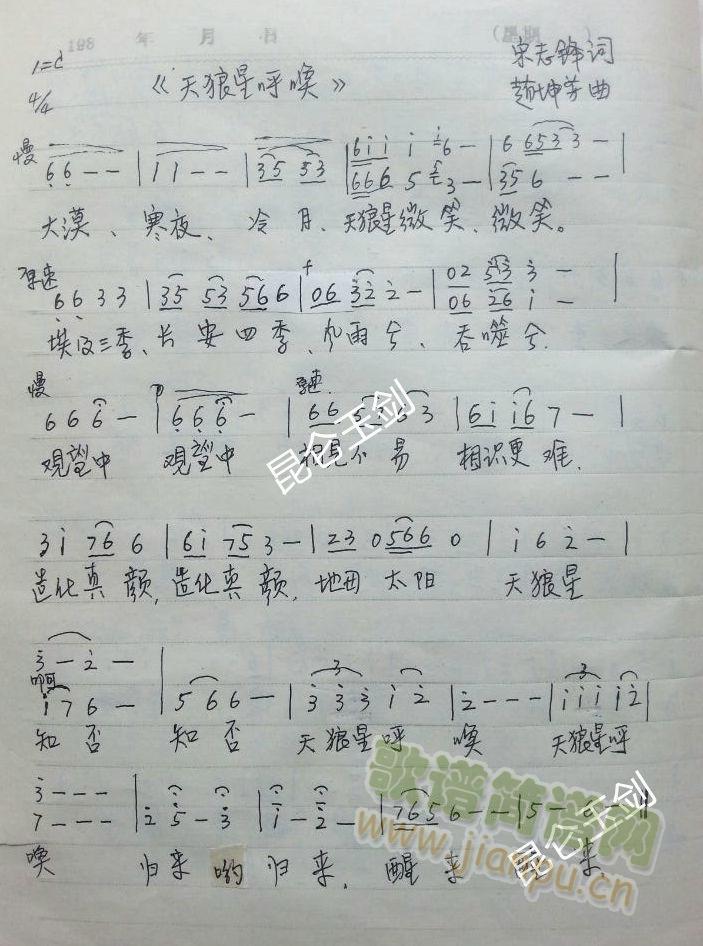 198 年 月 日 (星期 )
1=d
4/4
《天狼星呼唤》
宋志锋词
赵坤芳曲
慢
6 6 - - | 1 1 - - | 35 53 | 6i i i i6 - | 6 6533 - |
666 5 3 - | 35 6 - -
大漠、寒夜、冷月、天狼星微笑、微笑。
6 6 3 3 | 35 53 566 | 06 32 2 - | 02 53 3 - |
06 26 i -
埃及三季、长安四季、风雨兮、吞噬兮.
慢
6 6 6 - | 6 6 6 - | 66 53 63 | 6i i6 7 - |
观望中 观望中 相见不易 相识更难.
3 i 76 6 | 6i 75 3 - | 23 0 566 0 | i 6 2 - |
造化真颜,造化真颜,地田太阳 天狼星
3 - 2 - |
啊
i 7 6 - | 5 6 6 - | 3 3 3 i 2 | 2 - - - | i i i i 2 |
知否 知否 天狼星呼唤 天狼星呼
3 - - -
7 - - - | 2 5 - 3 | i - 2 - | 7656 - - | 5 - 6 - ||
唤 归来哟归来,醒来 醒来.
昆仑玉剑
昆仑玉剑
歌谱简谱网
www.jianpu.cn